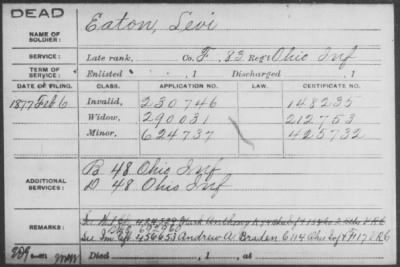 DEAD
NAME OF SOLDIER: Eaton, Levi
SERVICE: Late rank, Co. F, 83 Reg't Ohio Inf
TERM OF SERVICE: Enlisted , 1 Discharged , 1
DATE OF FILING. CLASS. APPLICATION NO. LAW. CERTIFICATE NO.
1877 Feb 6 Invalid, 230746 148235
Widow, 290031 212753
Minor, 624737 425732
ADDITIONAL SERVICES: B 48 Ohio Inf
D 48 Ohio Inf
REMARKS:
See Im Ctf 456653 Andrew A. Braden C 114 Ohio Inf & F 17 V R C
Died , 1 , at